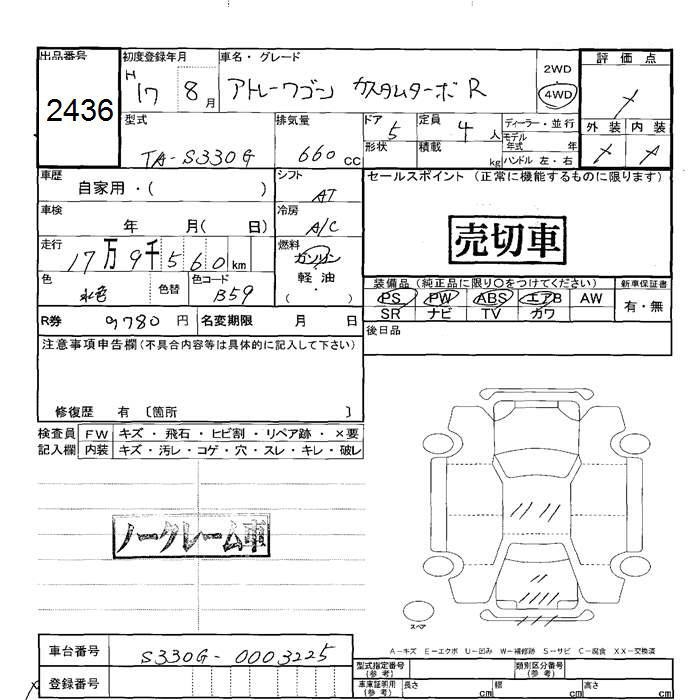 出品番号 初度登録年月 車名・グレード 評価点
2436 H 17 8月 アトレーワゴン カスタムターボ R 2WD 4WD
型式 排気量 ドア 5 定員 4人 ディーラー・並行 外装 内装
TA-S330G 660cc 形状 積載 kg モデル年式 年 ハンドル 左・右
車歴 自家用・( ) シフト AT セールスポイント (正常に機能するものに限ります)
車検 年 月( 日) 冷房 A/C
売切車
走行 17万9千560km 燃料 ガソリン
色 水色 色替 色コード B59 軽油 ( )
装備品 (純正品に限り○をつけてください) 新車保証書
PS PW ABS エアB AW 有・無
R券 9780円 名変期限 月 日 SR ナビ TV カワ
後日品
注意事項申告欄(不具合内容等は具体的に記入して下さい)
修復歴 有 〔箇所 〕
検査員 FW キズ・飛石・ヒビ割・リペア跡・×要
記入欄 内装 キズ・汚レ・コゲ・穴・スレ・キレ・破レ
ノークレーム車
スペア
A-キズ E-エクボ U-凹み W-補修跡 S-サビ C-腐食 XX-交換済
車台番号 S330G-0003225
登録番号
型式指定番号 (参考) 類別区分番号 (参考)
車庫証明用 (参考) 長さ cm 幅 cm 高さ cm